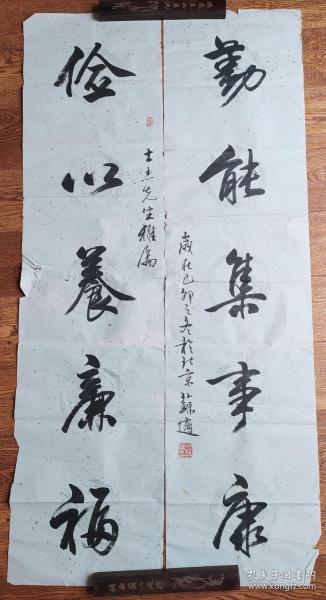 勤能集事康
歲在己卯之冬於北京蘇適
俭以養廉福
士杰先生雅属
孔夫子旧书网